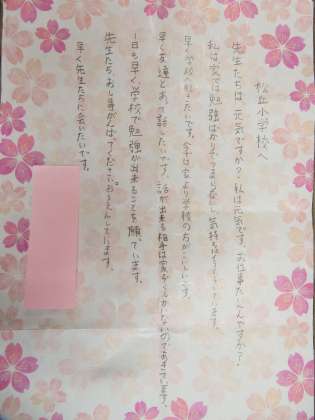 松丘小学校へ
先生たちは、元気ですか？私は元気です。お仕事たいへんですか？
私は家では勉強ばかりやってます
早く学校へ行きたいです。今は家より学校の方がいいです。
早く友達とあって話したいです。話が出来る相手は家ぞくしかいないのであきています。
1日も早く学校で勉強が出来ることを願っています。
先生たち、お仕事がんばってください。おうえんしています。
早く先生たちに会いたいです。